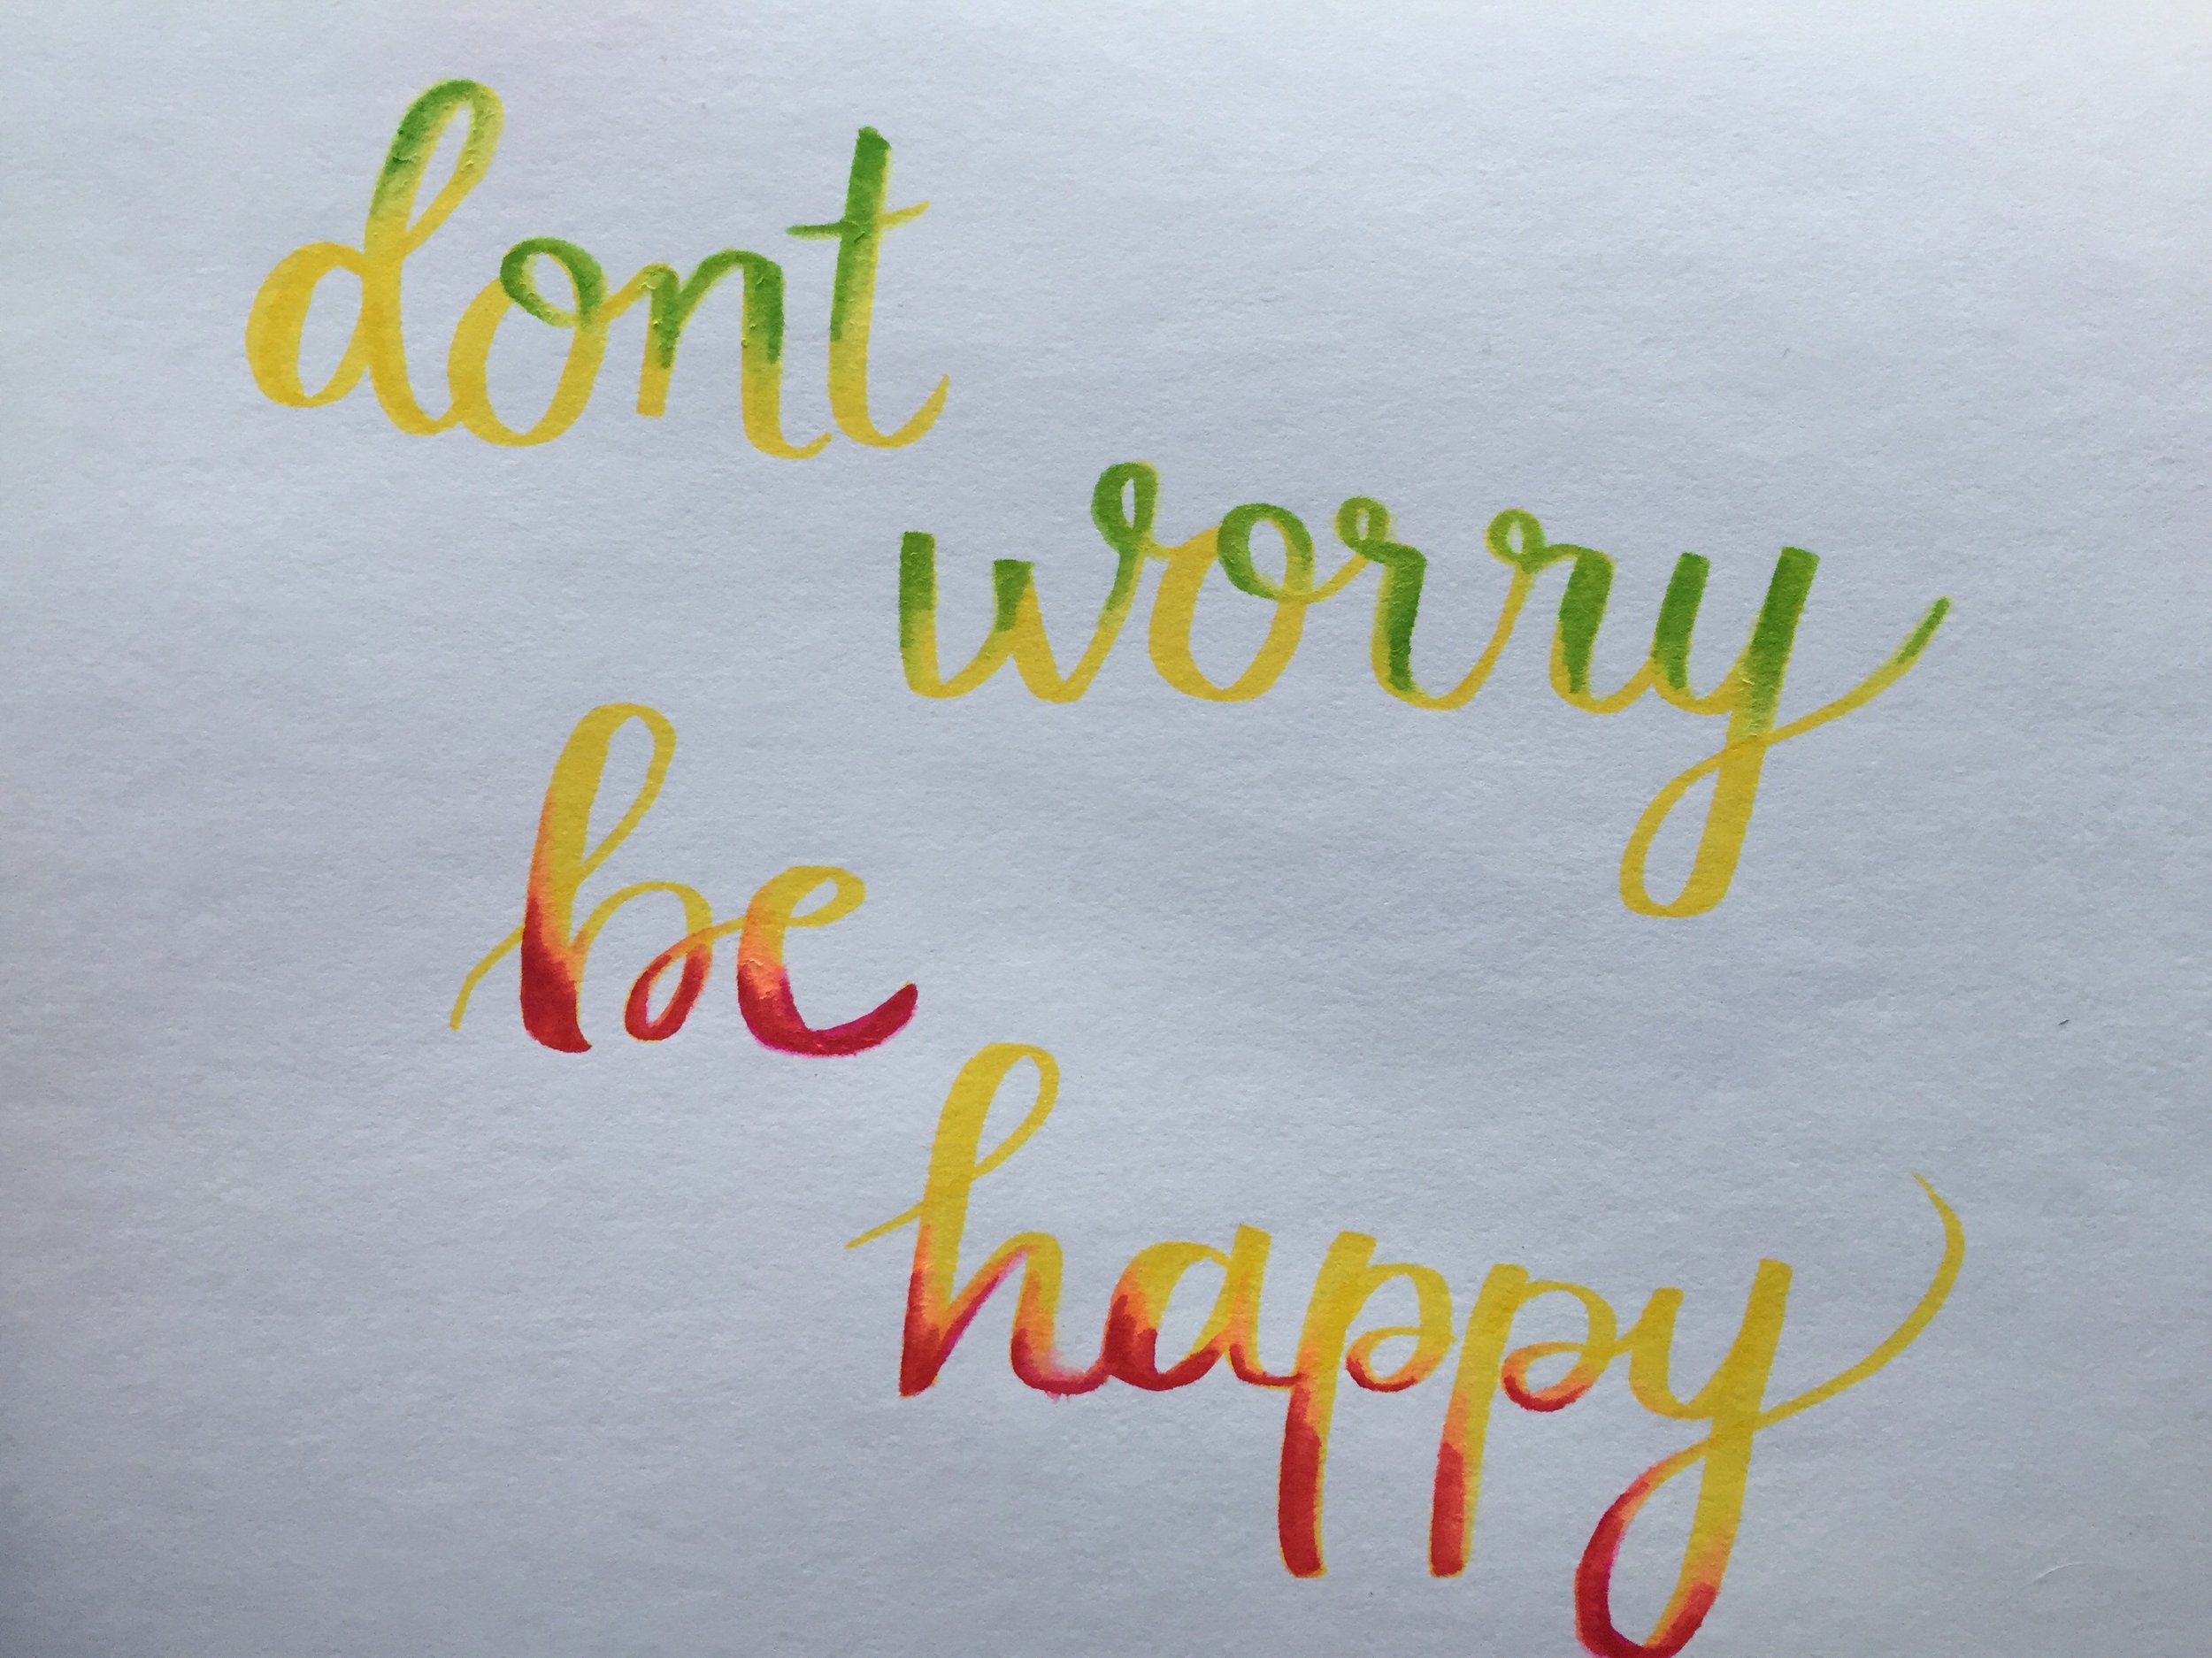 dont
worry
be
happy